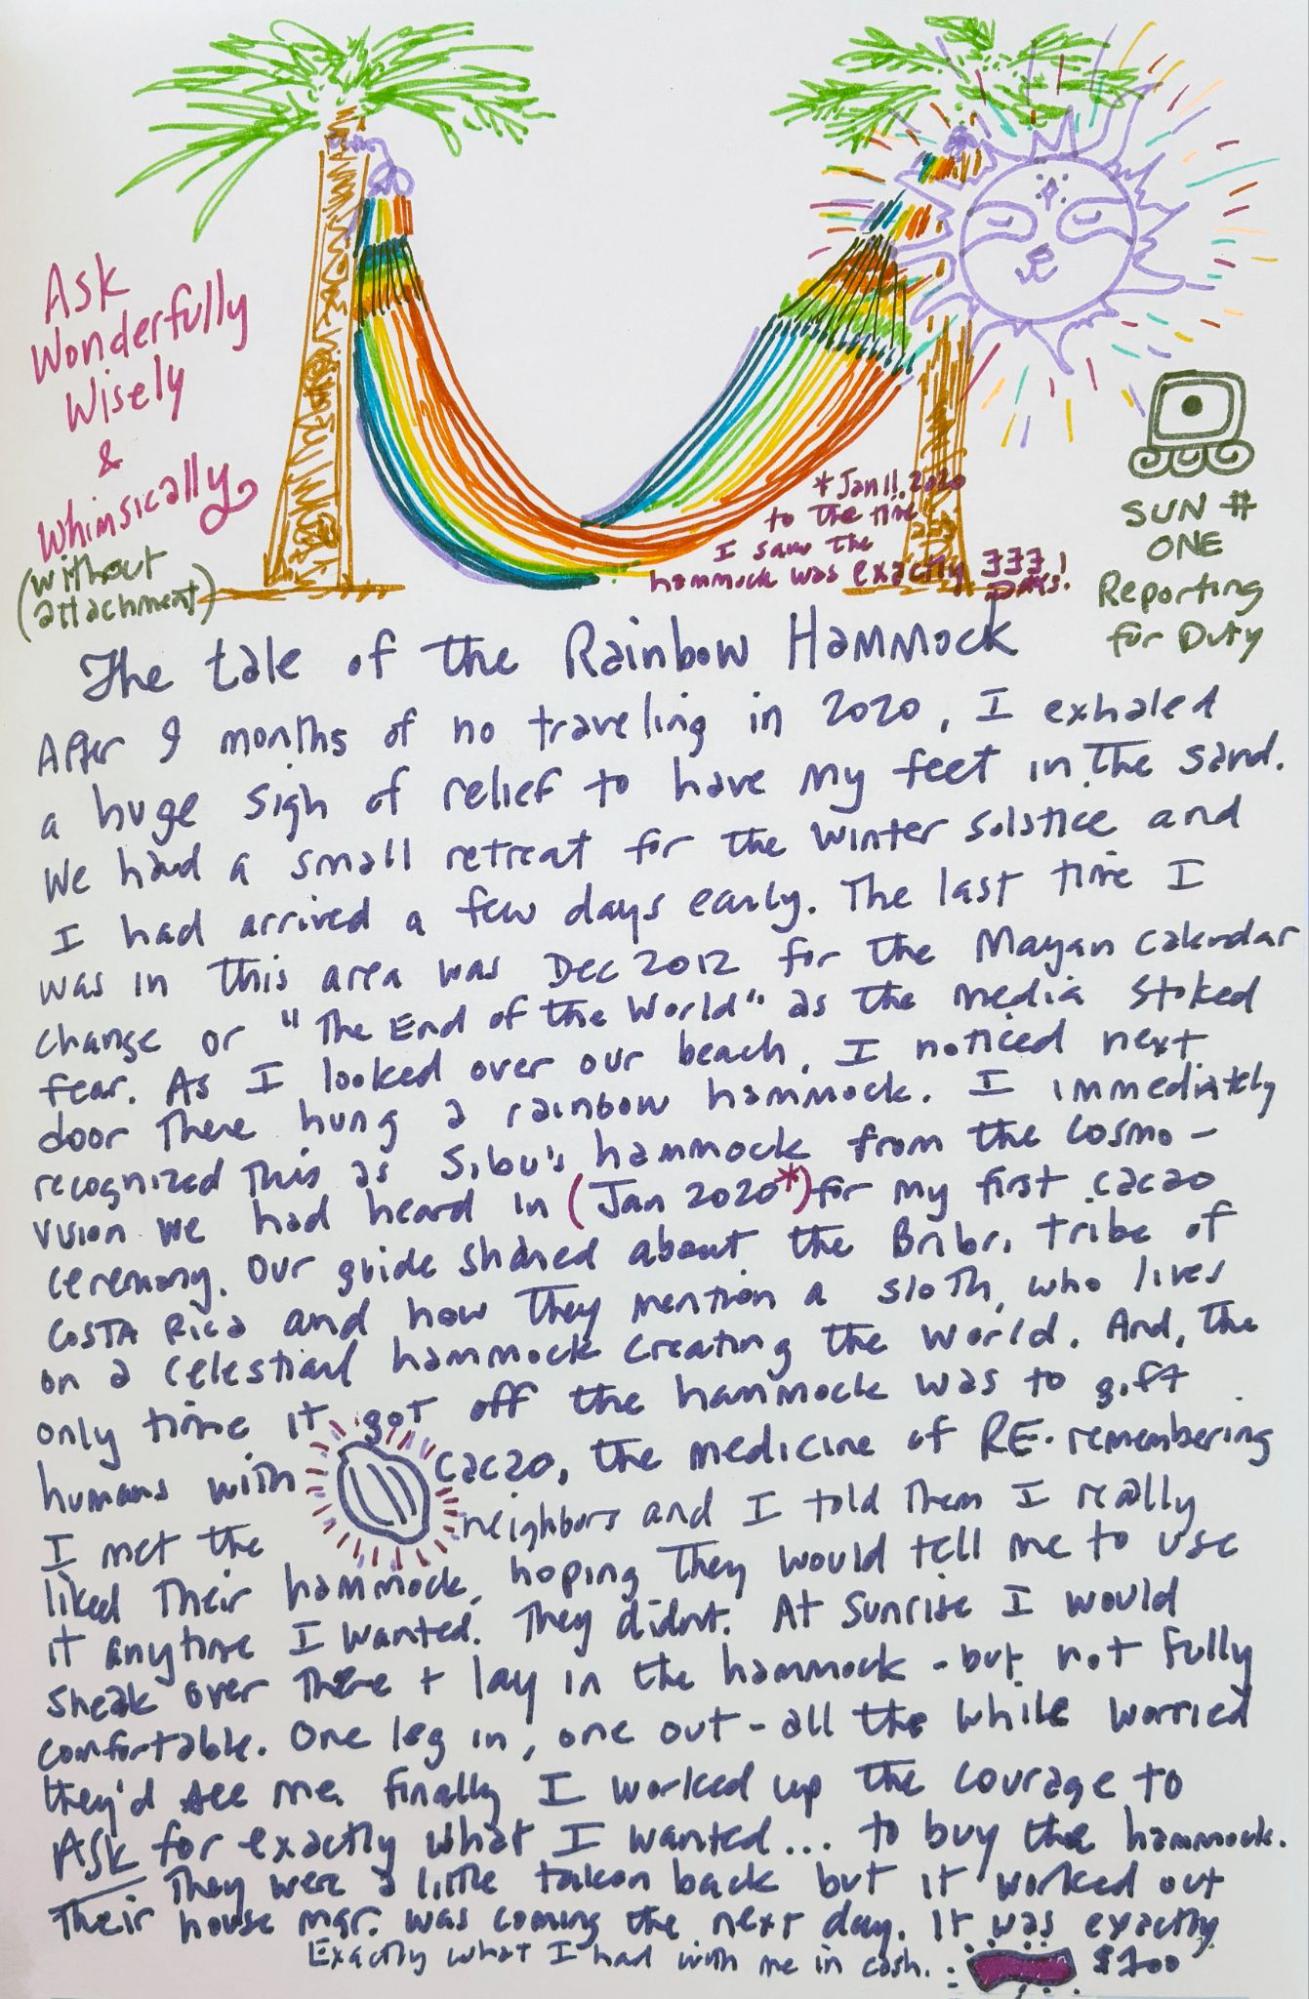 Ask
Wonderfully
Wisely
&
Whimsically
(without
attachment)
* Jan 11. 2020
to the time
I saw the
hammock was exactly 333
Days!
SUN #
ONE
Reporting
for Duty
The tale of the Rainbow Hammock
After 9 months of no traveling in 2020, I exhaled
a huge sigh of relief to have my feet in the sand.
We had a small retreat for the Winter Solstice and
I had arrived a few days early. The last time I
was in this area was Dec 2012 for the Mayan Calendar
change or "The End of the World" as the media stoked
fear. As I looked over our beach, I noticed next
door there hung a rainbow hammock. I immediately
recognized this as Sibu's hammock from the cosmo-
vision we had heard in (Jan 2020*) for my first cacao
ceremony. Our guide shared about the Bribri tribe of
Costa Rica and how they mention a sloth, who lives
on a celestial hammock creating the world. And, the
only time it got off the hammock was to gift
humans with cacao, the medicine of RE-remembering
I met the neighbors and I told them I really
liked their hammock, hoping they would tell me to use
it anytime I wanted. They didnt. At Sunrise I would
sneak over there + lay in the hammock - but not fully
comfortable. One leg in, one out - all the while worried
they'd see me. Finally I worked up the courage to
ASK for exactly what I wanted... to buy the hammock.
They were a little taken back but it worked out
Their house mgr. was coming the next day. It was exactly
Exactly what I had with me in cash.. $700